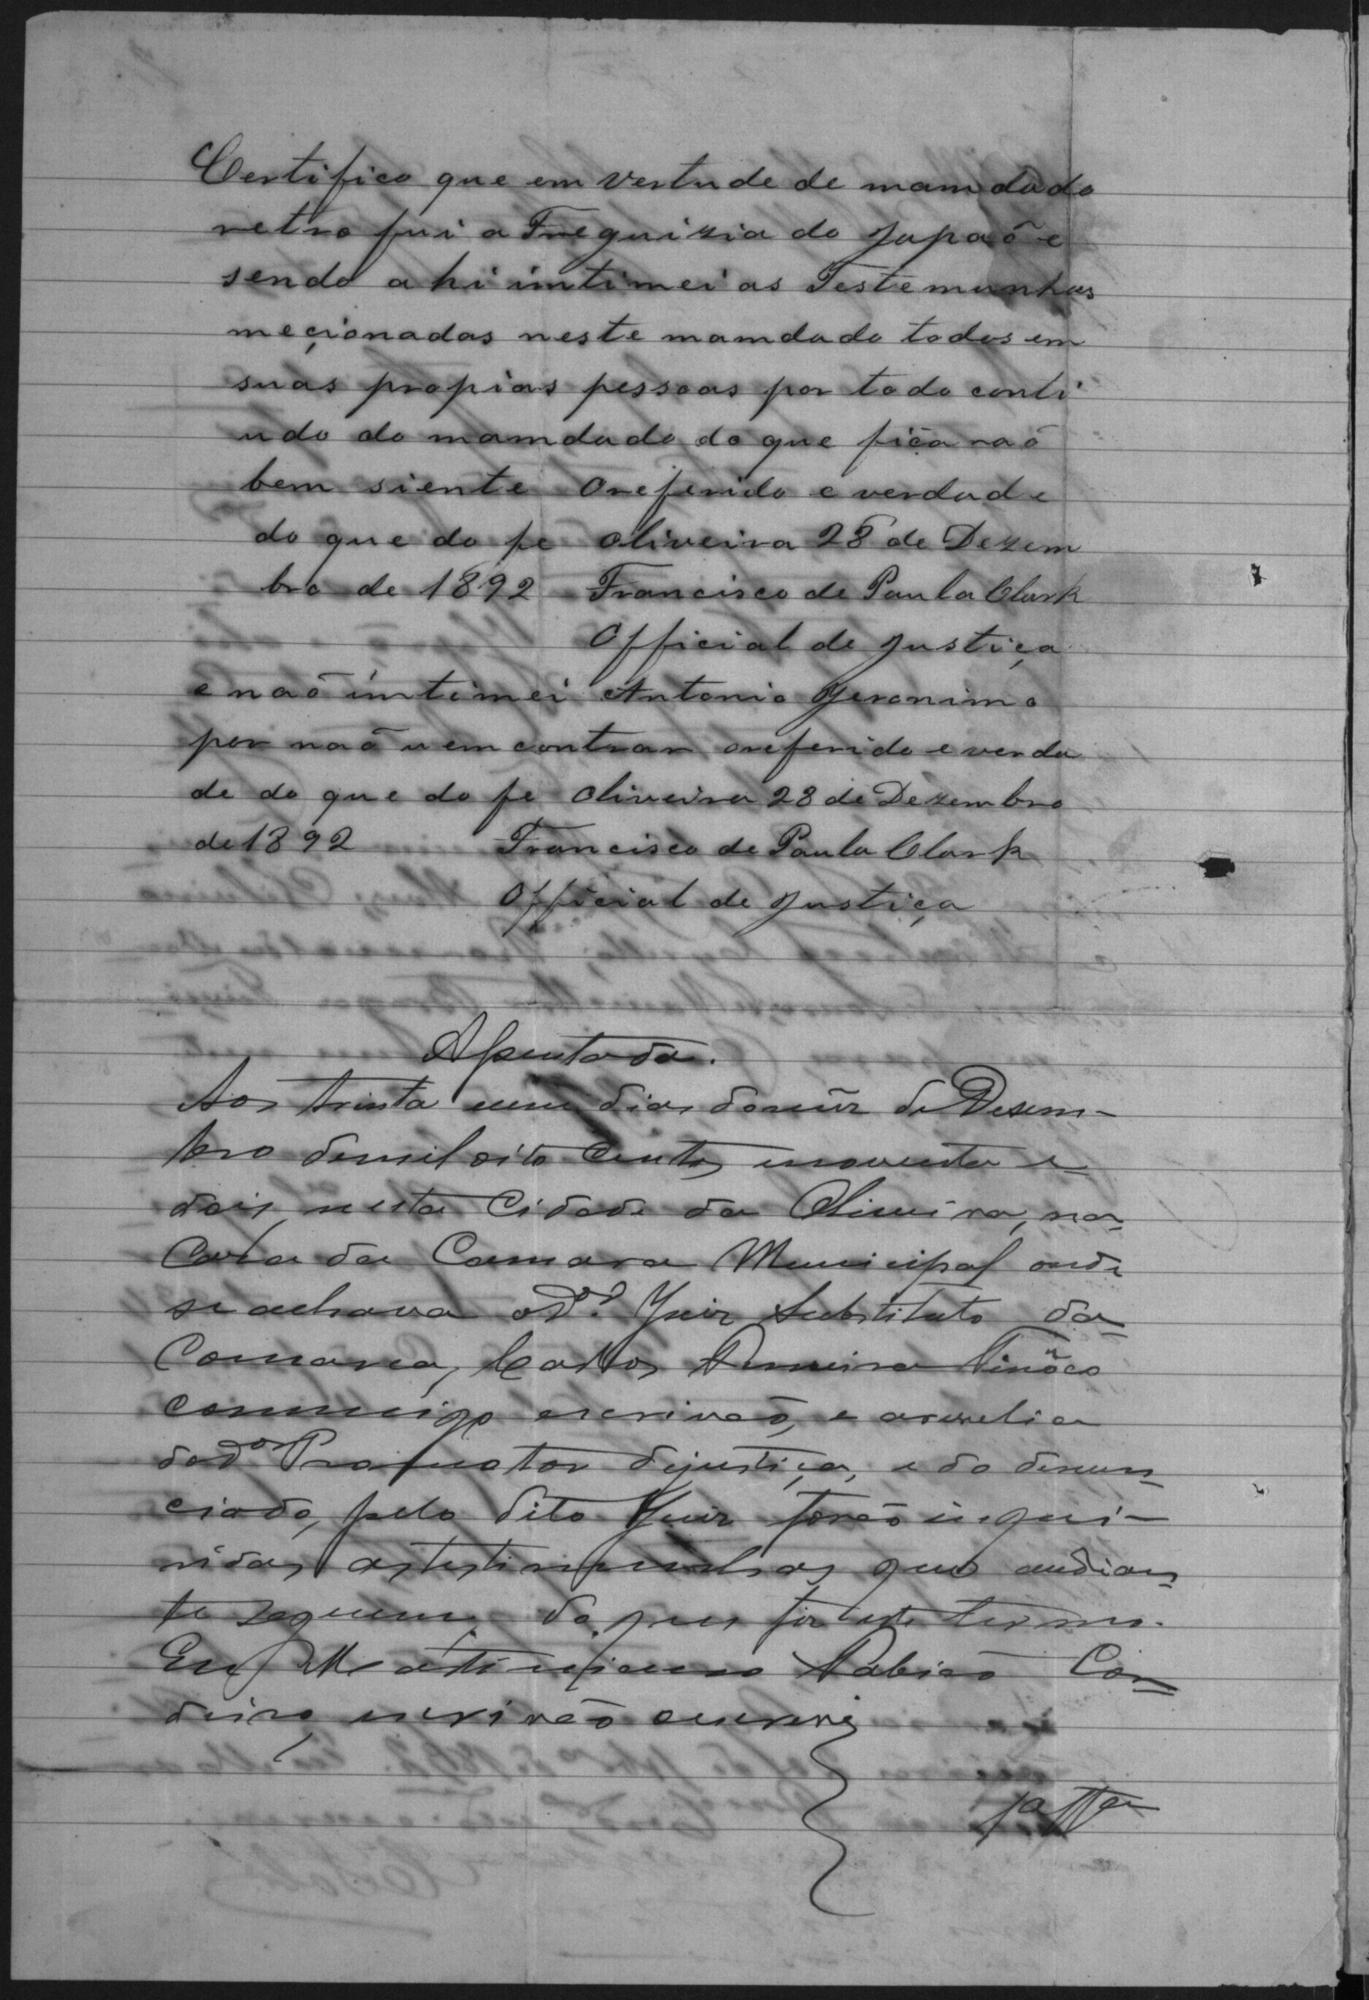 Certifico que em vertude de mamdado
retro fui a Freguizia do Japaõ e
sendo ahi intimei as Testemunhas
meçionadas neste mamdado todos em
suas propias pessoas por todo conti
udo do mamdado do que fiçaraõ
bem siente O referido e verdade
do que do fe Oliveira 28 de Dezem
bro de 1892 Francisco de Paula Clark
Official de Justiça
e naõ intimei Antonio Jeronimo
por naõ u emcontrar o referido e verda
de do que do fe Oliveira 28 de Dezembro
de 1892 Francisco de Paula Clark
Official de Justiça
Assentada.
Aos trinta um dias do mez de Dezem-
bro de mil oito centos noventa e
dois, nesta Cidade da Oliveira, na
Casa da Camara Municipal onde
se achava o Dor. Juiz Substituto da
Comarca, Carlos Ferreira Tinôco
commigo escrivaõ, e a revelia
do do Promotor de justiça, e do denun
ciado, pelo dito Juiz forão inqui-
ridas as testimunhas que audian
te seguem; do que fiz este termo.
Eu, Martiniano Cor
deiro, escrivão escrevi